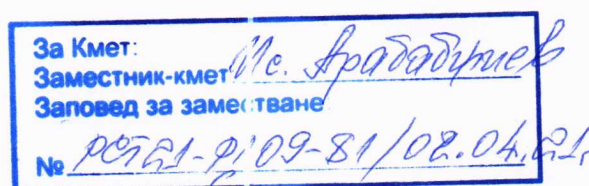 За Кмет:
Заместник-кмет Ис. Арабаджиев
Заповед за заместване
№ РСТ21-РД09-81/02.04.21.